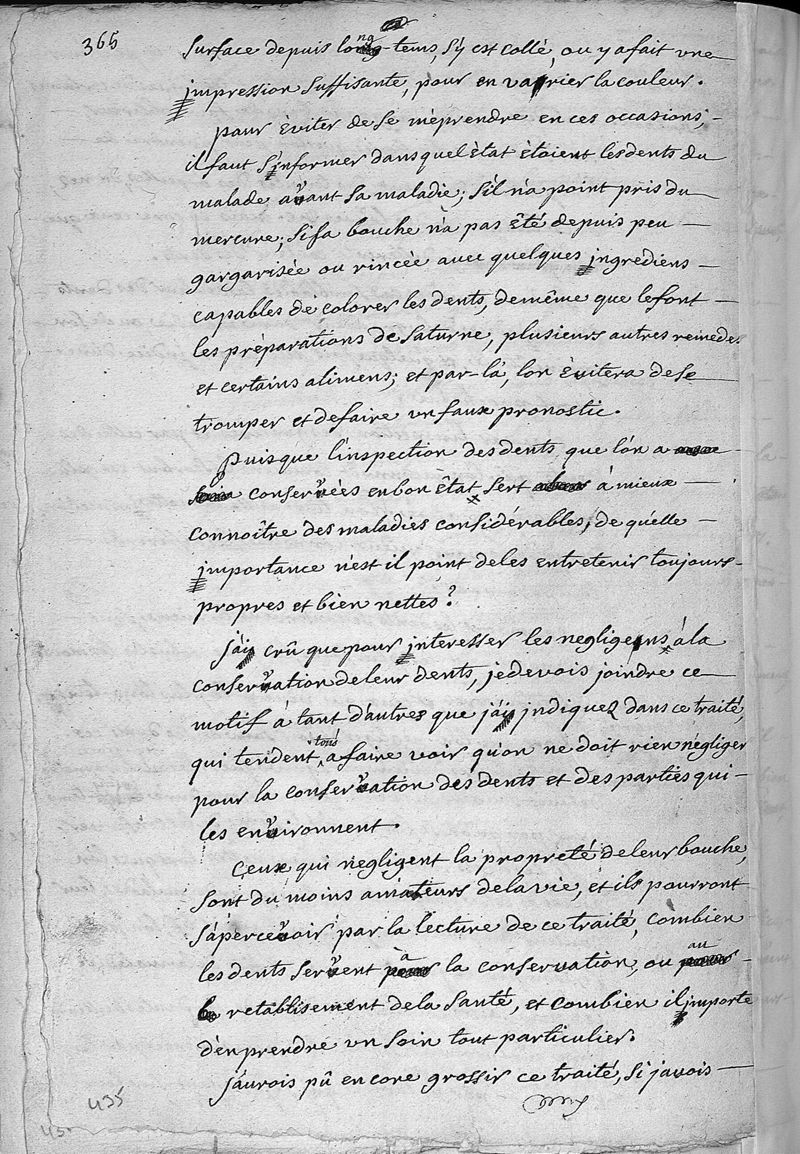 365
surface depuis long-tems, s'y est collé, ou y a fait une
impression suffisante, pour en varier la couleur.
pour èviter de se méprendre en ces occasions,
il faut s'informer dans quel ètat ètoient les dents du
malade avant sa maladie; s'il n'a point pris du
mercure; si sa bouche n'a pas êté depuis peu
gargarisée ou rincée avec quelques ingrediens
capables de colorer les dents, de même que le font
les préparations de saturne, plusieurs autres remedes
et certains alimens; et par-là, lon èvitera de se
tromper et de faire un faux pronostic.
puisque l'inspection des dents que l'on a
conservées en bon êtat sert à mieux
connoître des maladies considérables, de quelle
importance n'est il point de les entretenir toujours
propres et bien nettes?
j'ai crû que pour interesser les negligens à la
conservation de leur dents, je devois joindre ce
motif à tant d'autres que j'ai indiquez dans ce traité,
qui tendent tous a faire voir qu'on ne doit rien négliger
pour la conservation des dents et des parties qui
les environnent.
Ceux qui negligent la propreté de leur bouche,
sont du moins amateurs de la vie, et ils pourront
s'apercevoir par la lecture de ce traité, combien
les dents servent à la conservation, ou au
retablisement de la santé, et combien il importe
d'en prendre un soin tout particulier.
j'aurois pû encore grossir ce traité, si j'avois
435